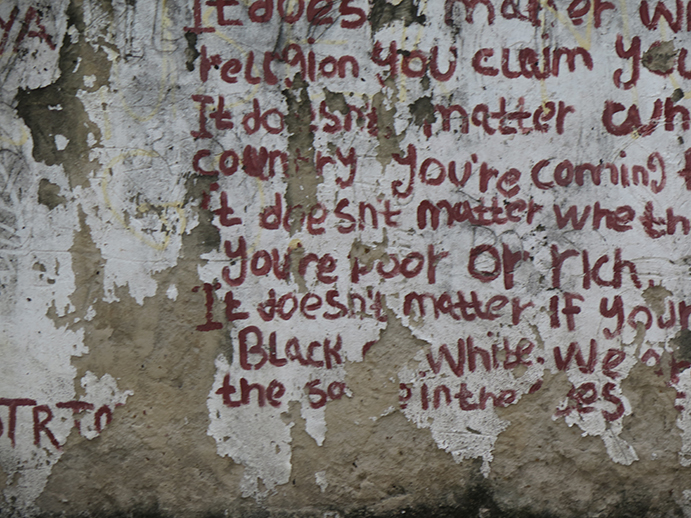 It does matter
YA
religion you claim you
It doesn't matter wh
country you're coming
it doesn't matter wheth
you're poor or rich.
It doesn't matter if your
Black White. We ar
the sa in the es
OTRTO